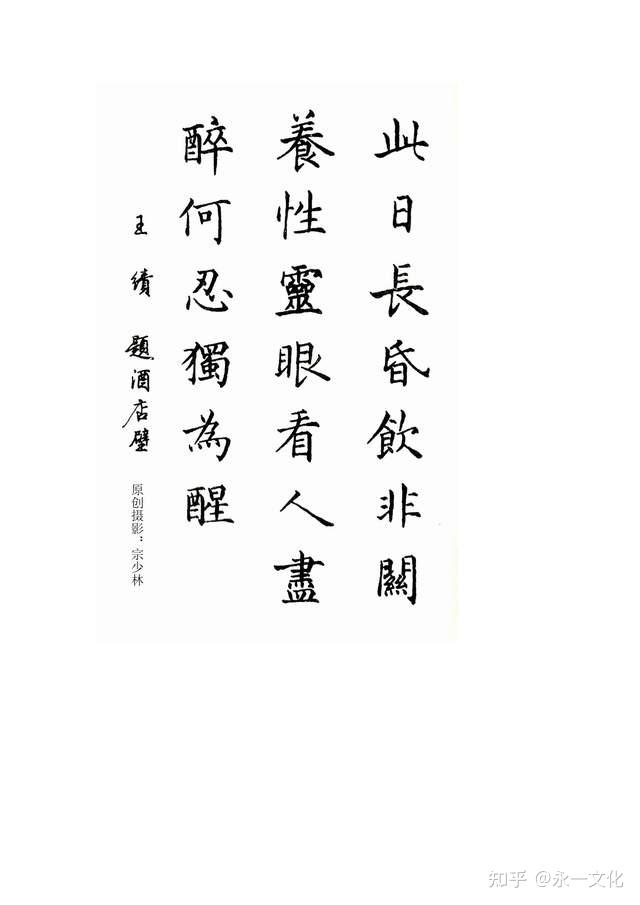 此日長昏飲非關
養性靈眼看人盡
醉何忍獨為醒
王績 題酒店壁
原创摄影：宗少林
知乎 @永一文化